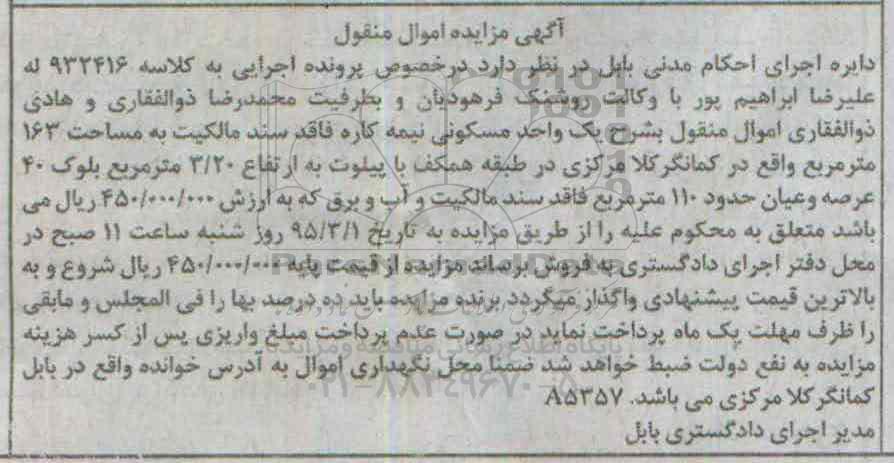 آگهی مزایده اموال منقول
دایره اجرای احکام مدنی بابل در نظر دارد درخصوص پرونده اجرایی به کلاسه ۹۳۲۴۱۶ له
علیرضا ابراهیم پور با وکالت روشنک فرهودیان و بطرفیت محمدرضا ذوالفقاری و هادی
ذوالفقاری اموال منقول بشرح یک واحد مسکونی نیمه کاره فاقد سند مالکیت به مساحت ۱۶۳
مترمربع واقع در کمانگرکلا مرکزی در طبقه همکف با پیلوت به ارتفاع ۳/۲۰ مترمربع بلوک ۴۰
عرصه وعیان حدود ۱۱۰ مترمربع فاقد سند مالکیت و آب و برق که به ارزش ۴۵۰/۰۰۰/۰۰۰ ریال می
باشد متعلق به محکوم علیه را از طریق مزایده به تاریخ ۹۵/۳/۱ روز شنبه ساعت ۱۱ صبح در
محل دفتر اجرای دادگستری به فروش برساند مزایده از قیمت پایه ۴۵۰/۰۰۰/۰۰۰ ریال شروع و به
بالاترین قیمت پیشنهادی واگذار میگردد برنده مزایده باید ده درصد بها را فی المجلس و مابقی
را ظرف مهلت یک ماه پرداخت نماید در صورت عدم پرداخت مبلغ واریزی پس از کسر هزینه
مزایده به نفع دولت ضبط خواهد شد ضمنا محل نگهداری اموال به آدرس خوانده واقع در بابل
کمانگرکلا مرکزی می باشد. A۵۳۵۷
مدیر اجرای دادگستری بابل
ParsNamadData
پایگاه اطلاع رسانی مناقصه و مزایده
۰۲۱-۸۸۳۴۹۶۷۰-۵